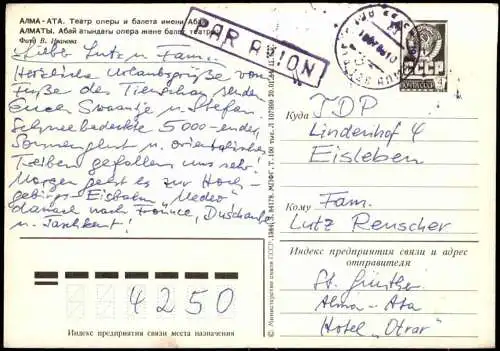 АЛМА-АТА. Театр оперы и балета имени Абая
АЛМАТЫ. Абай атындағы опера және балет театры
Фото В. Иванова
PAR AVION
СССР
Lieber Lutz u. Fam.!
Herzliche Urlaubsgrüße vom
Fuße des Tienschan senden
Euch Swaantje u. Stefan.
Schneebedeckte 5000-ender,
Sonnenglut u. orientalisches
Treiben gefallen uns sehr!
Morgen geht es zur Hoch-
gebirgs-Eisbahn "Medeo"
danach nach Frunse, Duschanbe
u. Taschkent!
Куда
TDP
Lindenhof 4
Eisleben
Кому
Fam.
Lutz Renscher
Индекс предприятия связи и адрес
отправителя
St. Günther
Alma-Ata
Hotel "Otrar"
4250
Индекс предприятия связи места назначения
© Министерство связи СССР, 1986.